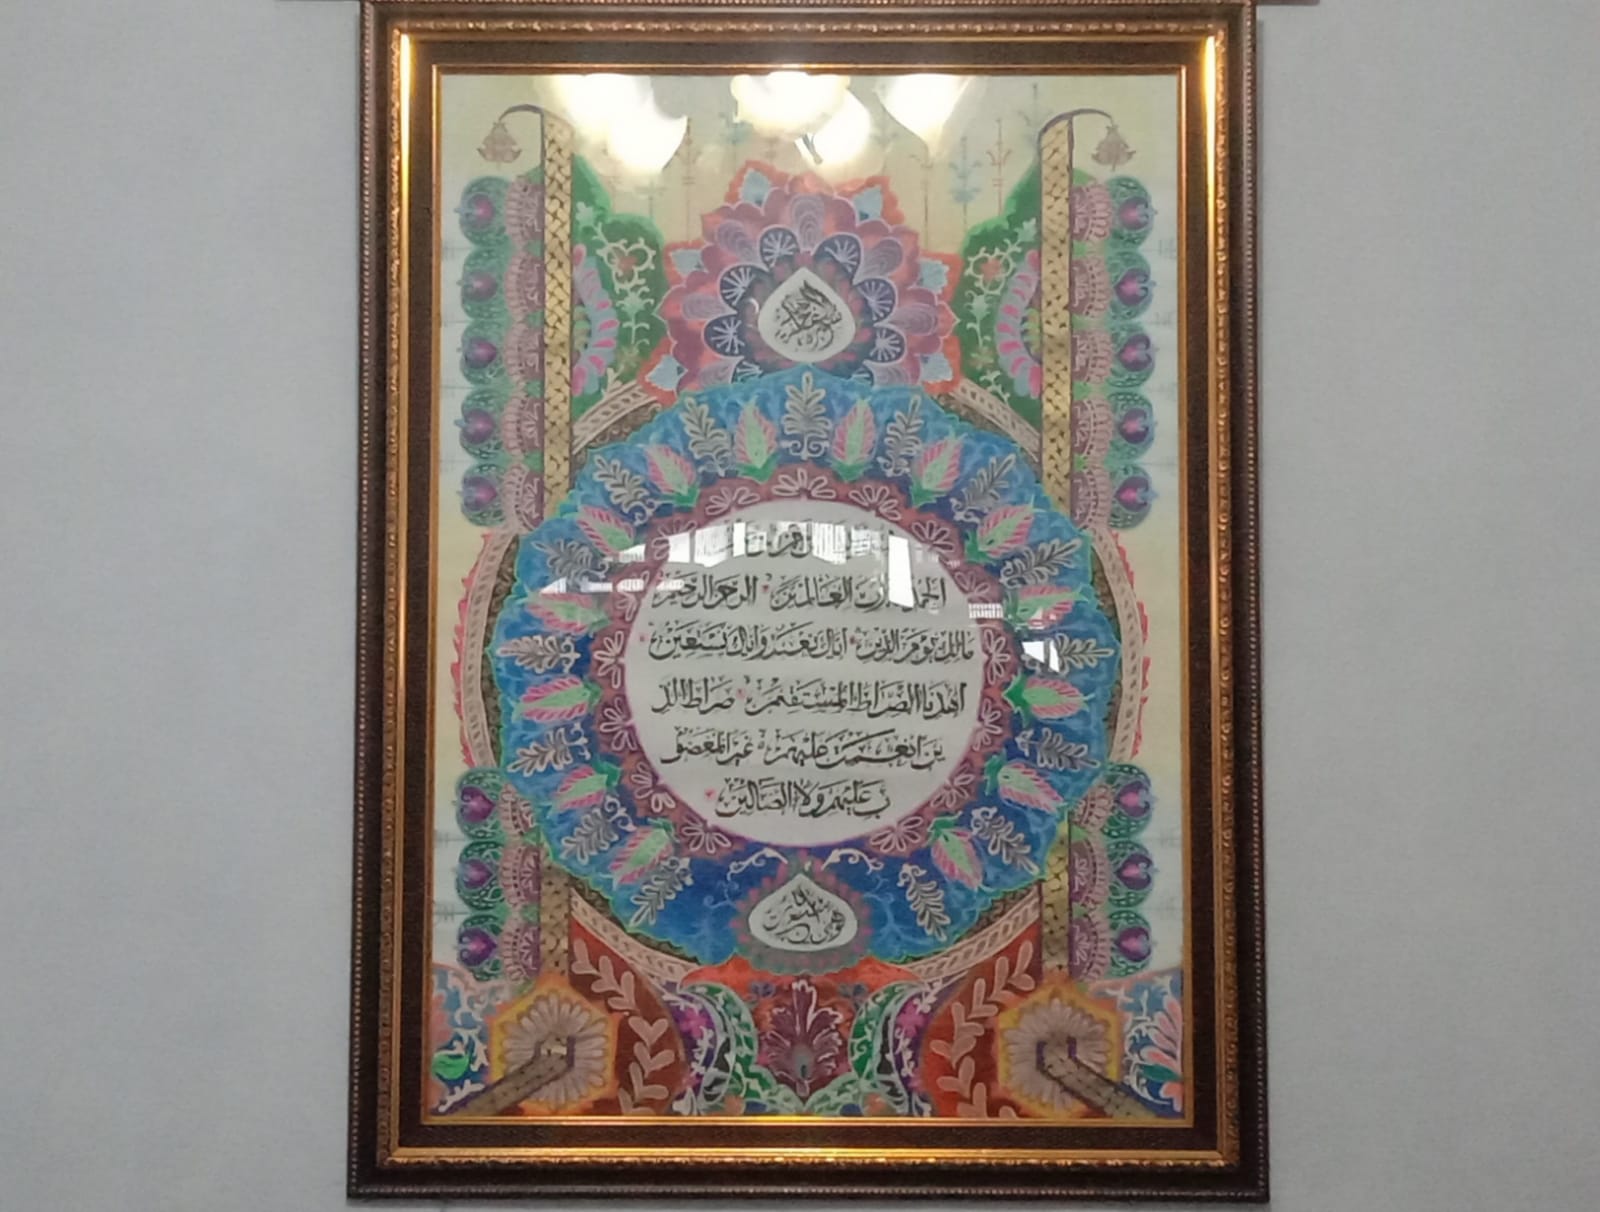 الحمد رب العالمين الرحمن الرحيم
مالك يوم الدين اياك نعبد واياك نستعين
اهدنا الصراط المستقيم صراط الذ
ين انعمت عليهم غير المغضو
ب عليهم ولا الضالين